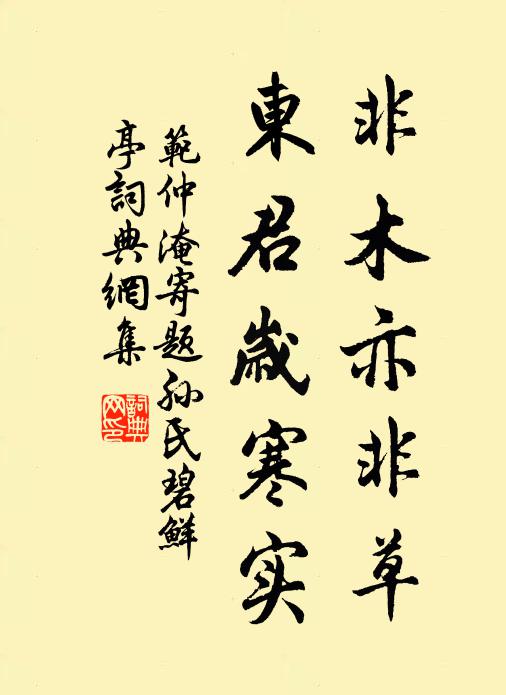 非木亦非草
東君歲寒实
範仲淹寄题孙氏碧鮮
亭詞典網集
詞典
网印